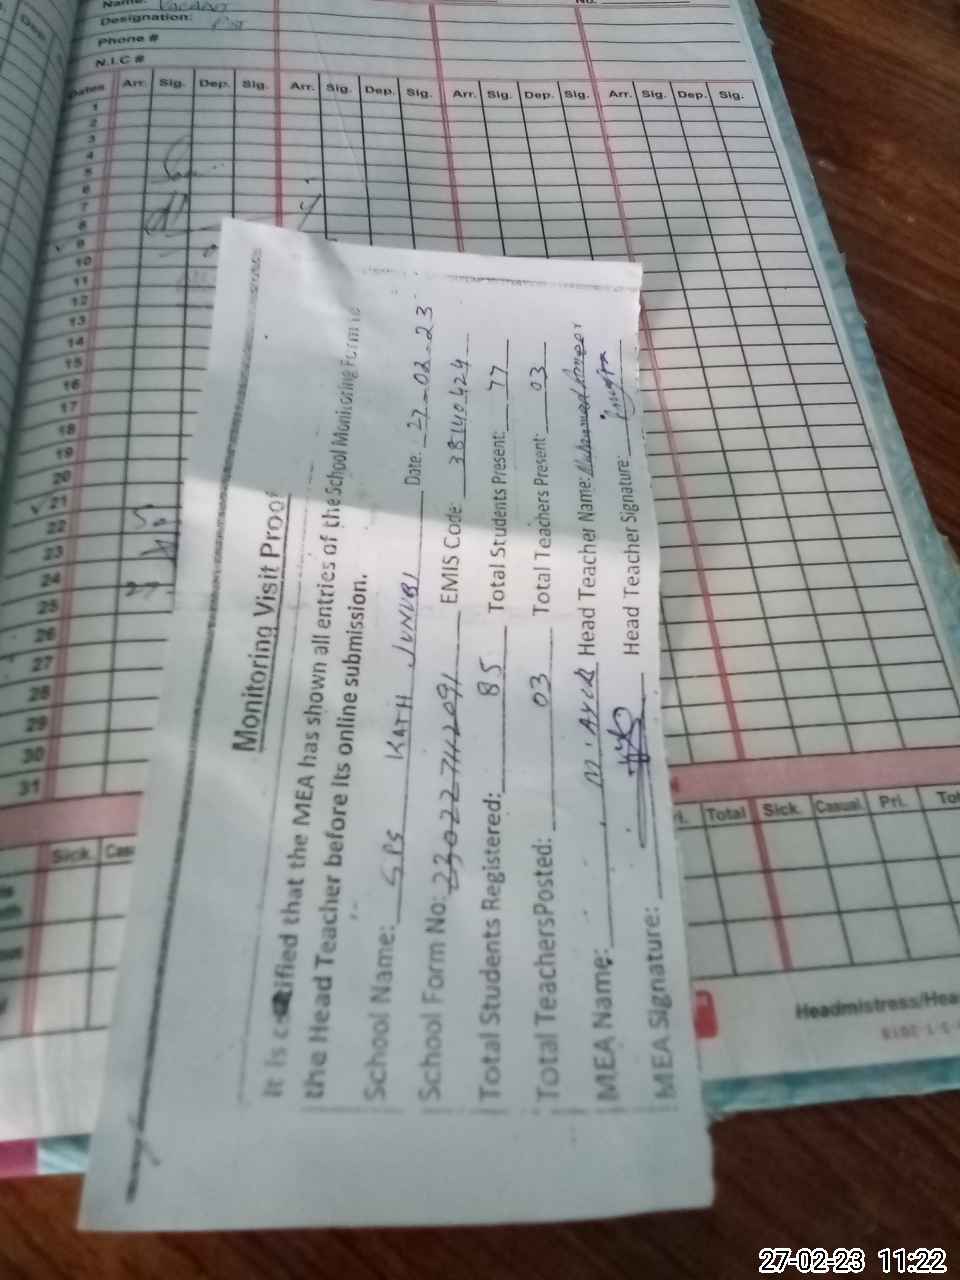 Name:
Designation:
Phone #
N.I.C #
Dates Arr. Sig. Dep. Sig. Arr. Sig. Dep. Sig. Arr. Sig. Dep. Sig. Arr. Sig. Dep. Sig.
1
2
3
4
5
6
7
8
9
10
11
12
13
14
15
16
17
18
19
20
21
22
23
24
25
26
27
28
29
30
31
Sick. Cas
Total Sick. Casual Pri. Tot
Headmistress/Hea
Monitoring Visit Proof
It is certified that the MEA has shown all entries of the School Monitoring Form to
the Head Teacher before its online submission.
School Name: GPS KATH JUNUBI Date: 27-02-23
School Form No: EMIS Code: 38140424
Total Students Registered: 85 Total Students Present: 77
Total TeachersPosted: 03 Total Teachers Present: 03
MEA Name: Head Teacher Name: Muhammad
MEA Signature: Head Teacher Signature:
27-02-23 11:22